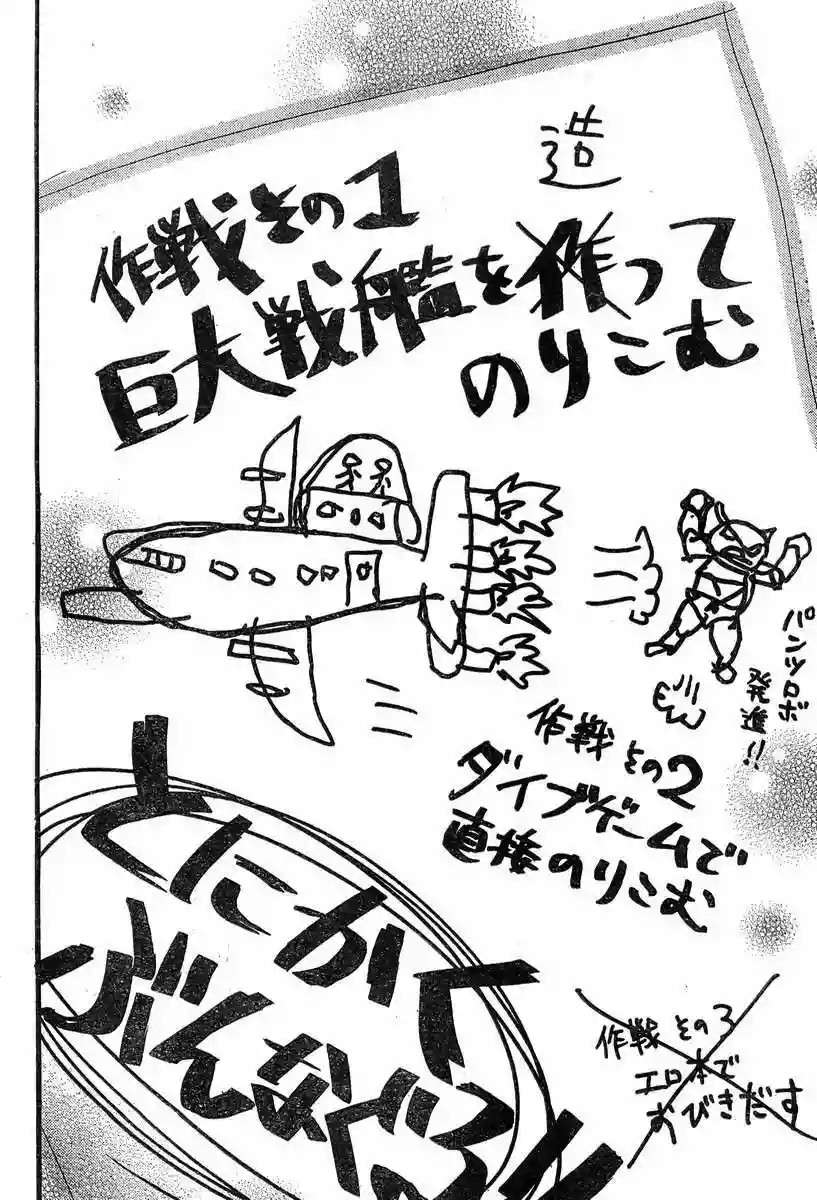 作戦その1
造
巨大戦艦を作って
のりこむ
パンツロボ
発進!!
作戦その2
ダイブゲームで
直接のりこむ
とにかく
ぶんなぐる!!
作戦その3
エロ本で
おびきだす